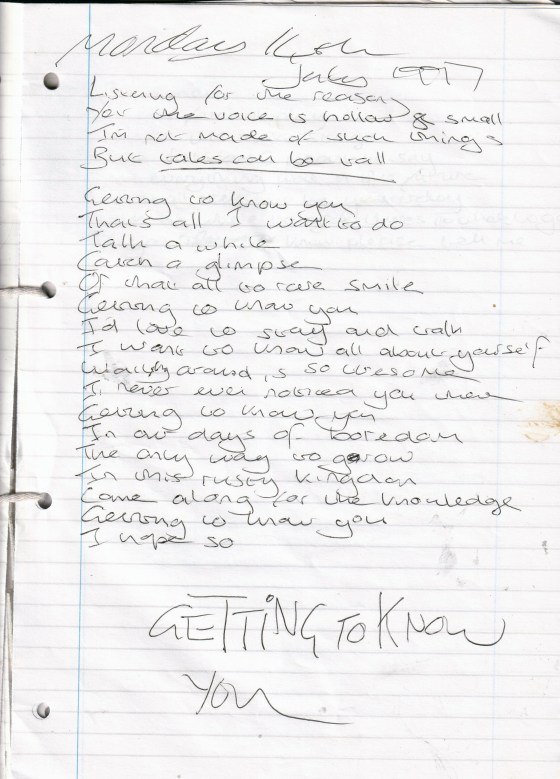 Monday 14th
July 1997
Listening for the reason
Yet the voice is hollow & small
I'm not made of such things
But tales can be tall
Getting to know you
Thats all I want to do
Talk a while
Catch a glimpse
Of that all to rare smile
Getting to know you
I'd love to stay and talk
I want to know all about yourself
Waiting around is so tiresome
I never ever noticed you there
Getting to know you
In our days of boredom
The only way to grow
In this rusty kingdom
Come along for the knowledge
Getting to know you
I hope so
GETTING TO KNOW
YOU